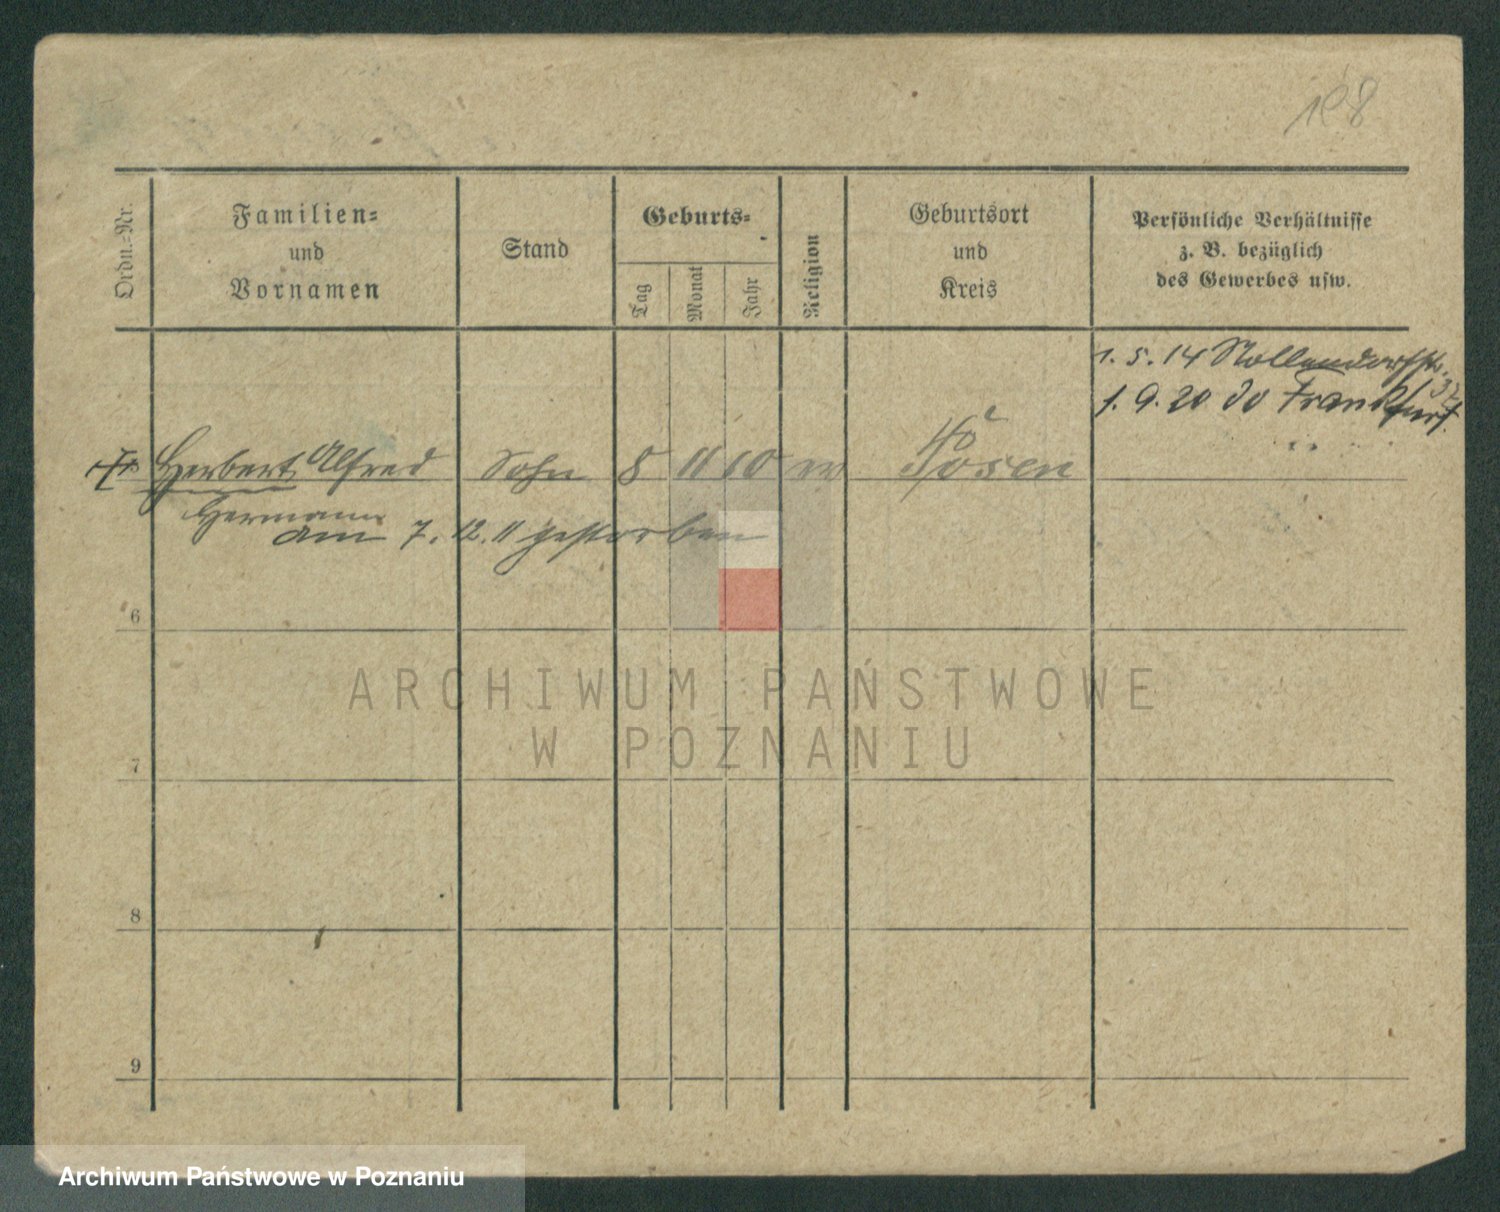 128
Ordn.-Nr.
Familien-
und
Vornamen
Stand
Geburts-
Tag
Monat
Jahr
Religion
Geburtsort
und
Kreis
Persönliche Verhältnisse
z. B. bezüglich
des Gewerbes usw.
1. 5. 14 Nollendorfstr. 37
1. 9. 20 do Frankfurt.
Herbert Alfred Sohn 8 11 10 Posen
Hermann
am 7. 12. 11 gestorben
6
ARCHIWUM PAŃSTWOWE
W POZNANIU
7
8
9
Archiwum Państwowe w Poznaniu